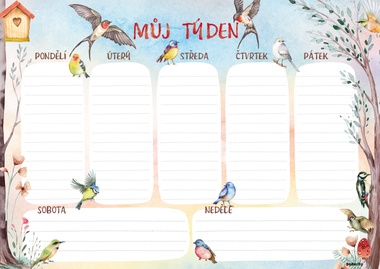 MŮJ TÝDEN
PONDĚLÍ ÚTERÝ STŘEDA ČTVRTEK PÁTEK
SOBOTA NEDĚLE